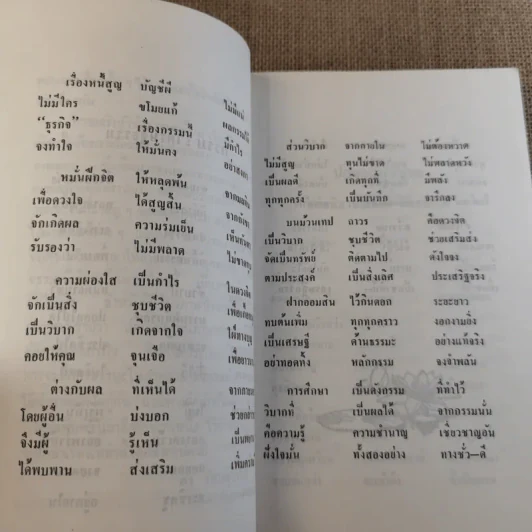 เรื่องหนี้สูญ บัญชีผี
ไม่มีใคร ขโมยแก้ ไม่มีแม่
“ธุรกิจ” เรื่องกรรมนี้
จงทำใจ ให้มั่นคง
หมั่นฝึกจิต ให้หลุดพ้น
เพื่อดวงใจ ได้สูญสิ้น
จักเกิดผล ความร่มเย็น
รับรองว่า ไม่มีพลาด
ความผ่องใส เป็นกำไร
จักเป็นสิ่ง ชุบชีวิต
เป็นวิบาก เกิดจากใจ
คอยให้คุณ จุนเจือ
ต่างกับผล ที่เห็นได้
โดยผู้อื่น บ่งบอก
จึงมีผู้ รู้เห็น
ได้พบพาน ส่งเสริม
ส่วนวิบาก จากภายใน ไม่ต้องหวาด
ไม่มีสูญ ทุนไม่ขาด ไม่พลาดหวัง
เป็นผลดี เกิดทุกที่ มีพลัง
ทุกทุกครั้ง เป็นบันทึก จารึกลง
บนม้วนเทป ถาวร คือดวงจิต
เป็นวิบาก ชุบชีวิต ช่วยเสริมส่ง
จัดเป็นทรัพย์ ติดตามไป ดังใจจง
ตามประสงค์ เป็นสิ่งเลิศ ประเสริฐจริง
ฝากออมสิน ไว้กินดอก ระยะยาว
ทบต้นเพิ่ม ทุกทุกคราว งอกงามยิ่ง
เป็นเศรษฐี ด้านธรรมะ อย่างแท้จริง
อย่าทอดทิ้ง หลักกรรม จงจำพลัน
การศึกษา เป็นดังกรรม ที่ทำไว้
วิบากที่ เป็นผลได้ จากกรรมนั้น
คือความรู้ ความชำนาญ เชี่ยวชาญอัน
พึงใจมั่น ทั้งสองอย่าง ทางชั่ว–ดี